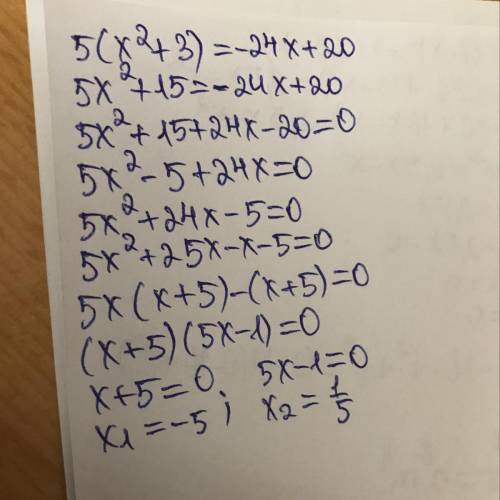 5(x²+3)=-24x+20
5x²+15=-24x+20
5x²+15+24x-20=0
5x²-5+24x=0
5x²+24x-5=0
5x²+25x-x-5=0
5x(x+5)-(x+5)=0
(x+5)(5x-1)=0
x+5=0; 5x-1=0
x1=-5 x2=1/5